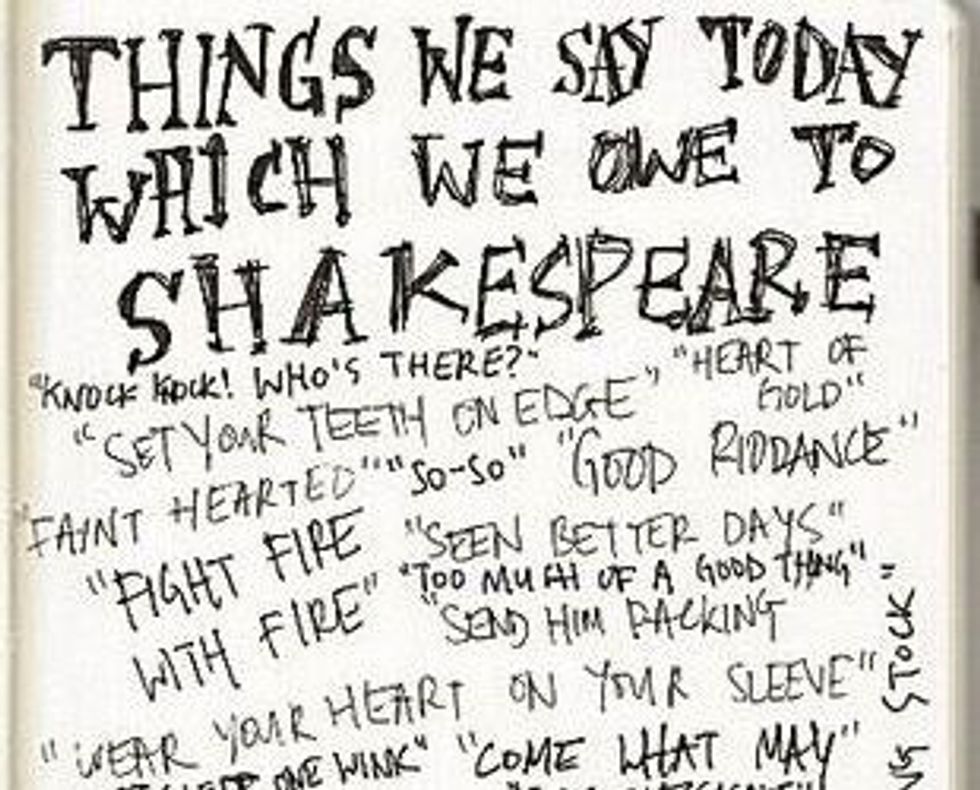 THINGS WE SAY TODAY
WHICH WE OWE TO
SHAKESPEARE
"KNOCK KNOCK! WHO'S THERE?" "HEART OF
GOLD"
"SET YOUR TEETH ON EDGE"
"FAINT HEARTED" "SO-SO" "GOOD RIDDANCE"
"FIGHT FIRE
WITH FIRE"
"SEEN BETTER DAYS"
"TOO MUCH OF A GOOD THING"
"SEND HIM PACKING
"WEAR YOUR HEART ON YOUR SLEEVE"
ONE WINK" "COME WHAT MAY"
STOCK